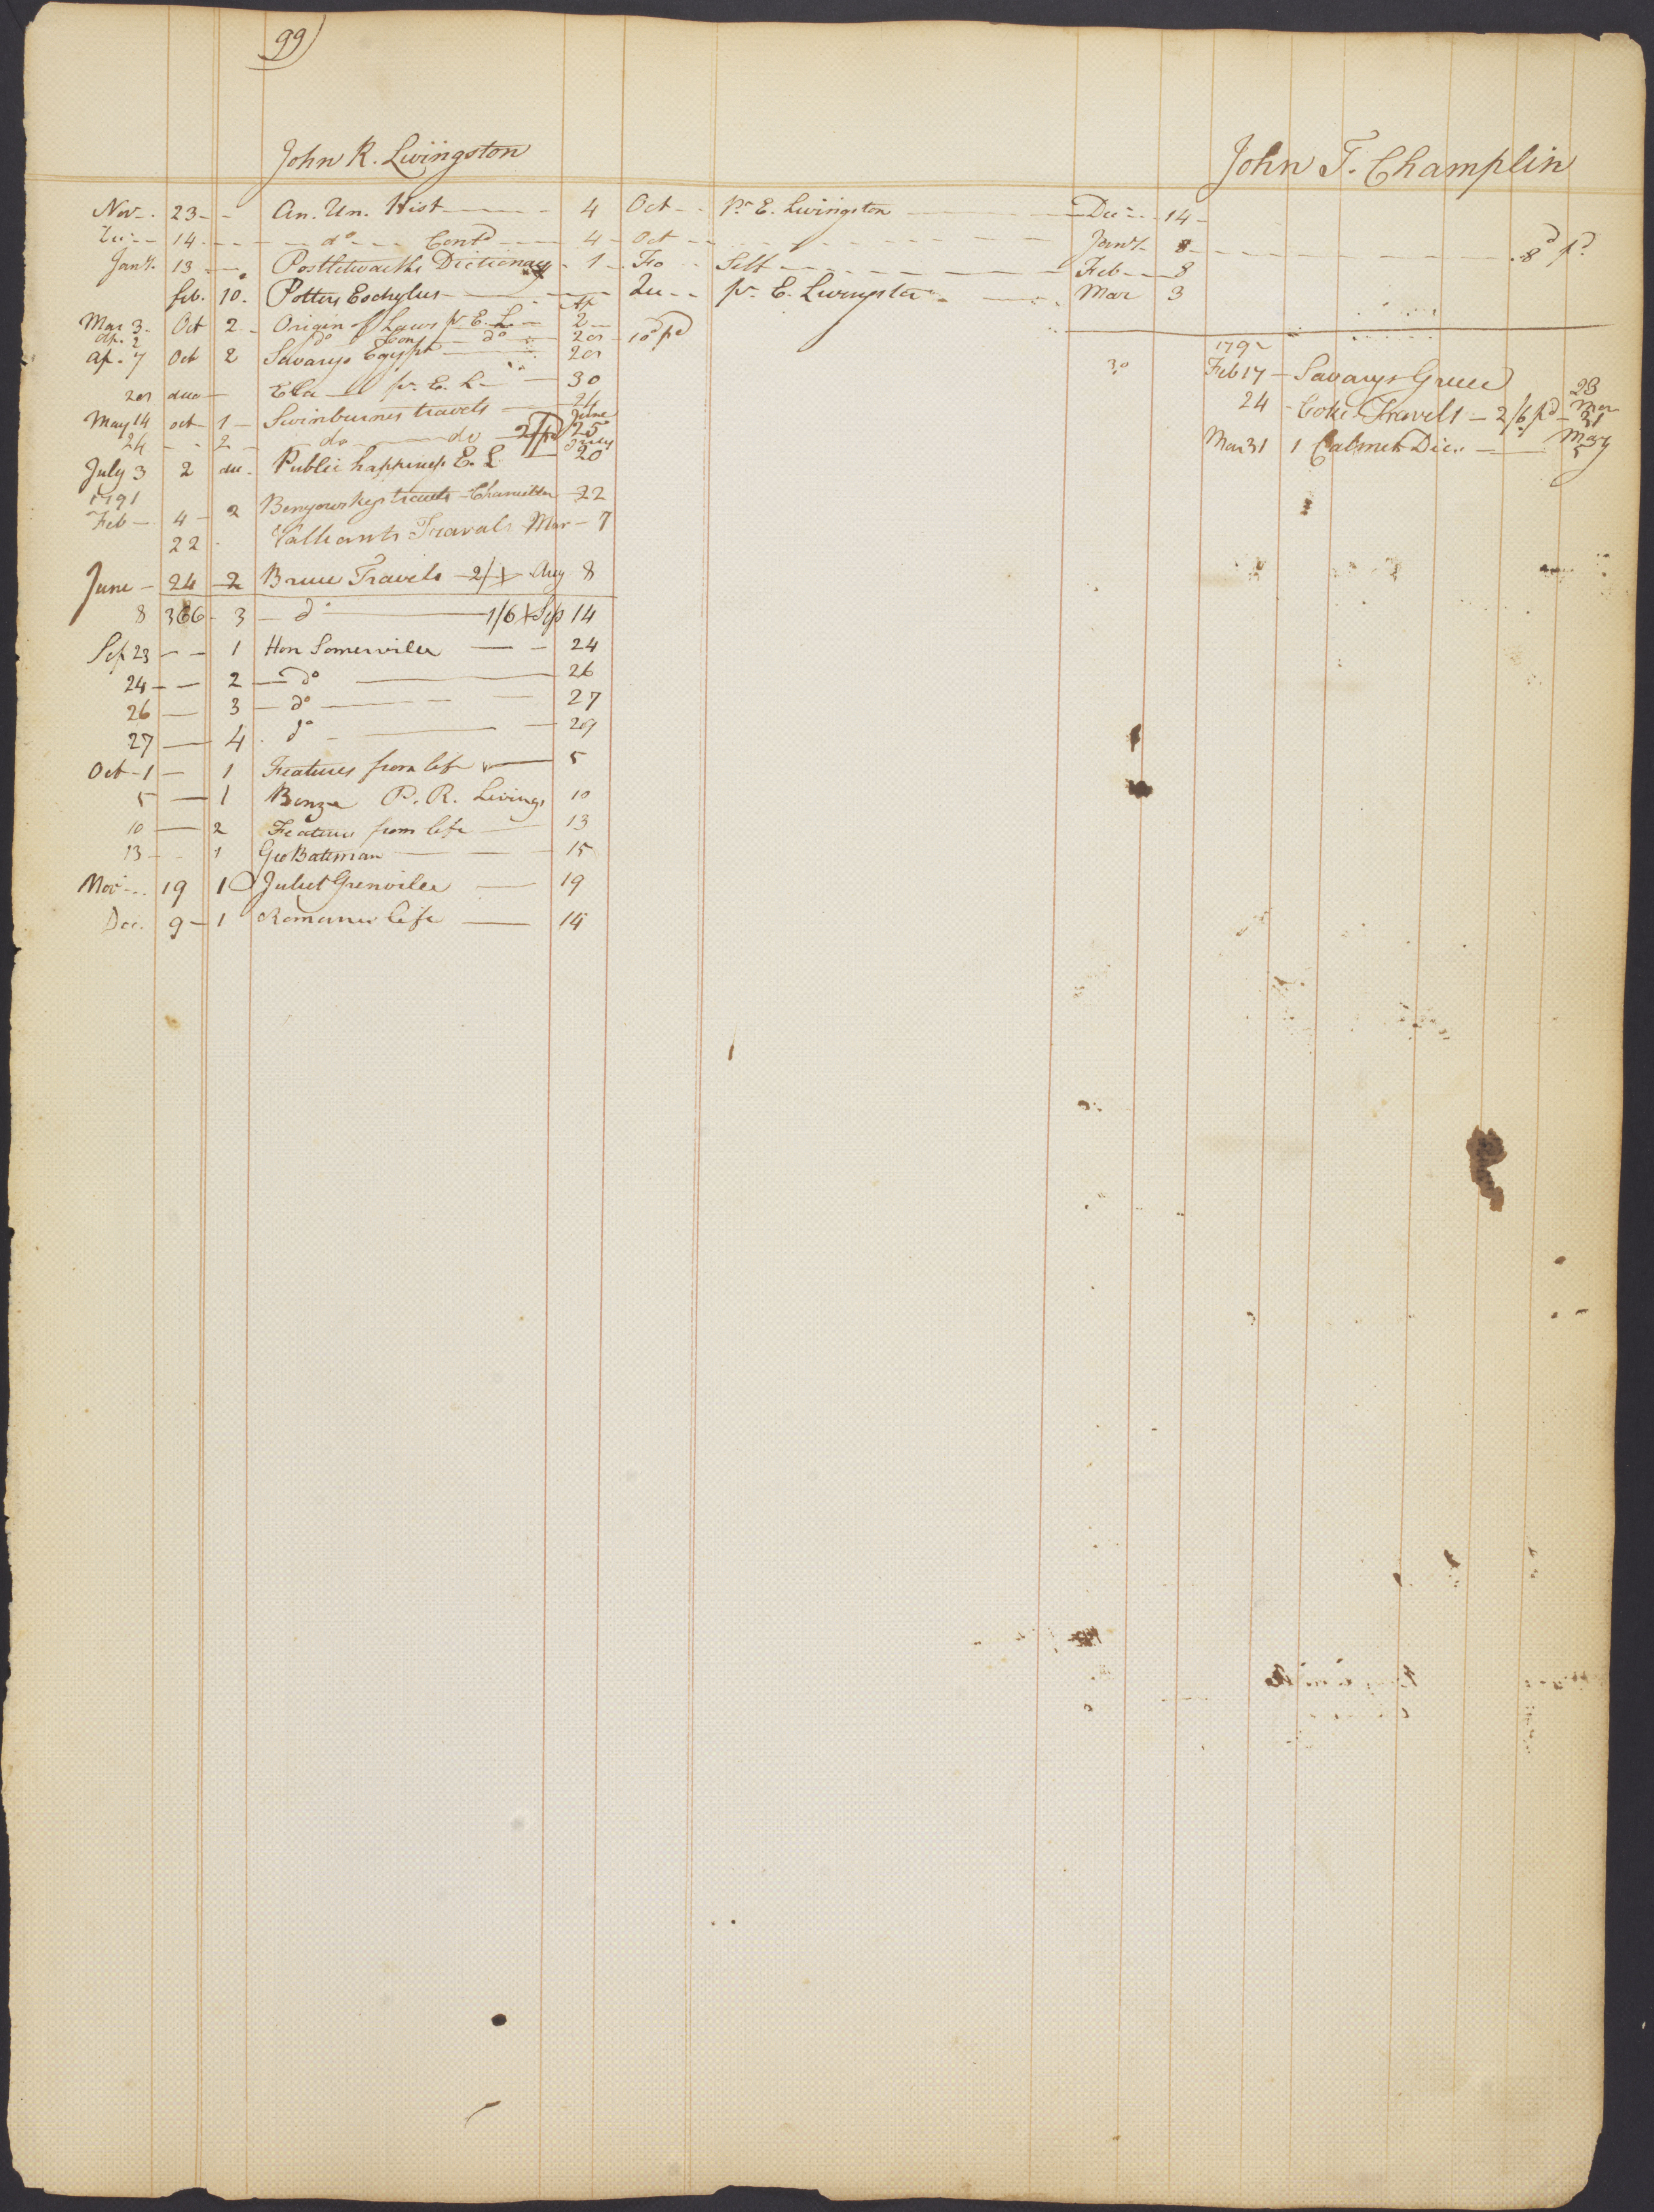 99)
John R. Livingston
Nov. 23 - - An. Un. Hist - 4 Oct - pr. E. Livingston - Dec - 14 -
Dec - 14 - - do - Contd - 4 - Oct - - Jany. 8 - 8d pd.
Jany. 13 - Postletwaiths Dictionary - 1 - Fo - Self - Feb - 8
feb. 10. Potters Eschylus - Qu - pr. E. Livingston - Mar 3
Mar 3 - Oct 2 - Origin of Laws pr E. L. - Ap 2 -
Ap. 2 do Con do - 20 - 10d pd
Ap. 7 Oct 2 Savarys Egypt - 20
20 duo - Ela - pr. E. L - 30
May 14 oct 1 - Swinburnes travels - 24
24 - - 2 - do - do - 2/ pd June 25
July 3 2 du. Public happiness E. L. - July 20
1791
Feb - 4 - 2 Benyowskys travels - Chancellor - 22
22 Valliants Travals Mar - 7
June - 24 - 2 Bruce Travels - 2/ - Aug 8
8 366 - 3 - do - 1/6 Sep 14
Sep 23 - - 1 Hon Somervilee - - 24
24 - - 2 - do - 26
26 - 3 - do - - 27
27 - 4 - do - - 29
Oct - 1 - 1 Features from life - 5
5 - 1 Benge P. R. Livings 10
10 - 2 Features from life - 13
13 - - 1 Geo Bateman - - 15
Nov - 19 1 Juliet Grenvilee - 19
Dec. 9 - 1 Romance life - 14
John T. Champlin
1792
Feb 17 - Savarys Greece 23
24 - Coke Travels - 2/6 pd - Mar 31
Mar 31 1 Calmet Dic. - May 5